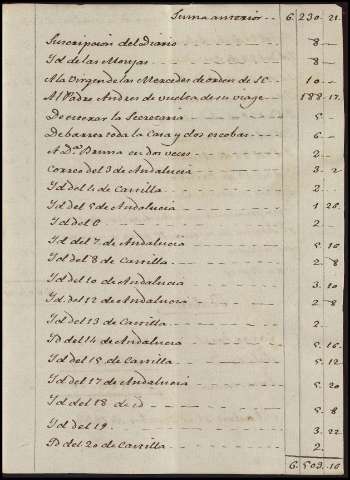 Suma anterior 6.230 21.
Suscripcion del Diario 8
Yd de las Monjas 8
A la Virgen de las Mercedes de orden de SE 10
Al Padre Andres de vuelta de su viage 188 17.
De esterar la Secretaria 5
De barrer toda la Casa y dos escobas 6
A D.ª Bruna en dos veces 2
Correo del 3 de Andalucia 3. 2
Yd del 4 de Castilla 2
Yd del 5 de Andalucia 1 20.
Yd del 6 2
Yd del 7 de Andalucia 5 10
Yd del 8 de Castilla 2 8
Yd del 10 de Andalucia 3. 10
Yd. del 12 de Andalucia 2 8
Yd del 13 de Castilla 2
Yd del 14 de Andalucia 5. 16.
Yd del 15 de Castilla 5. 12
Yd del 17 de Andalucia 5. 20
Yd del 18 de id 5. 8
Yd del 19. 3. 22
Yd del 20 de Castilla 2.
6.509. 10